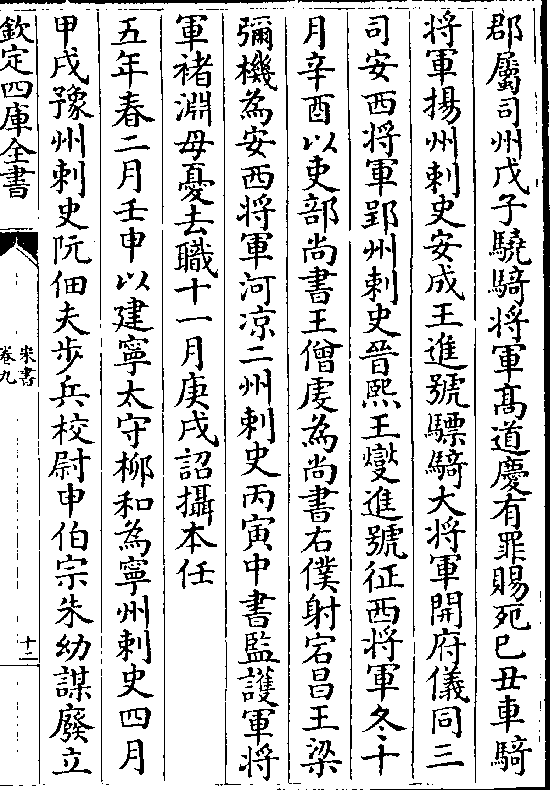 郡屬司州戊子驍騎將軍髙道慶有罪賜死已丑車騎
將軍揚州刺史安成王進號驃騎大將軍開府儀同三
司安西將軍郢州刺史晉熙王燮進號征西將軍冬十
月辛酉以吏部尚書王僧虔為尚書右僕射宕昌王梁
彌機為安西將軍河凉二州刺史丙寅中書監護軍將
軍褚淵母憂去職十一月庚戌詔攝本任
五年春二月壬申以建寧太守柳和為寧州刺史四月
甲戌豫州刺史阮佃夫步兵校尉申伯宗朱幼謀廢立
欽定四庫全書
宋書
卷九
十二